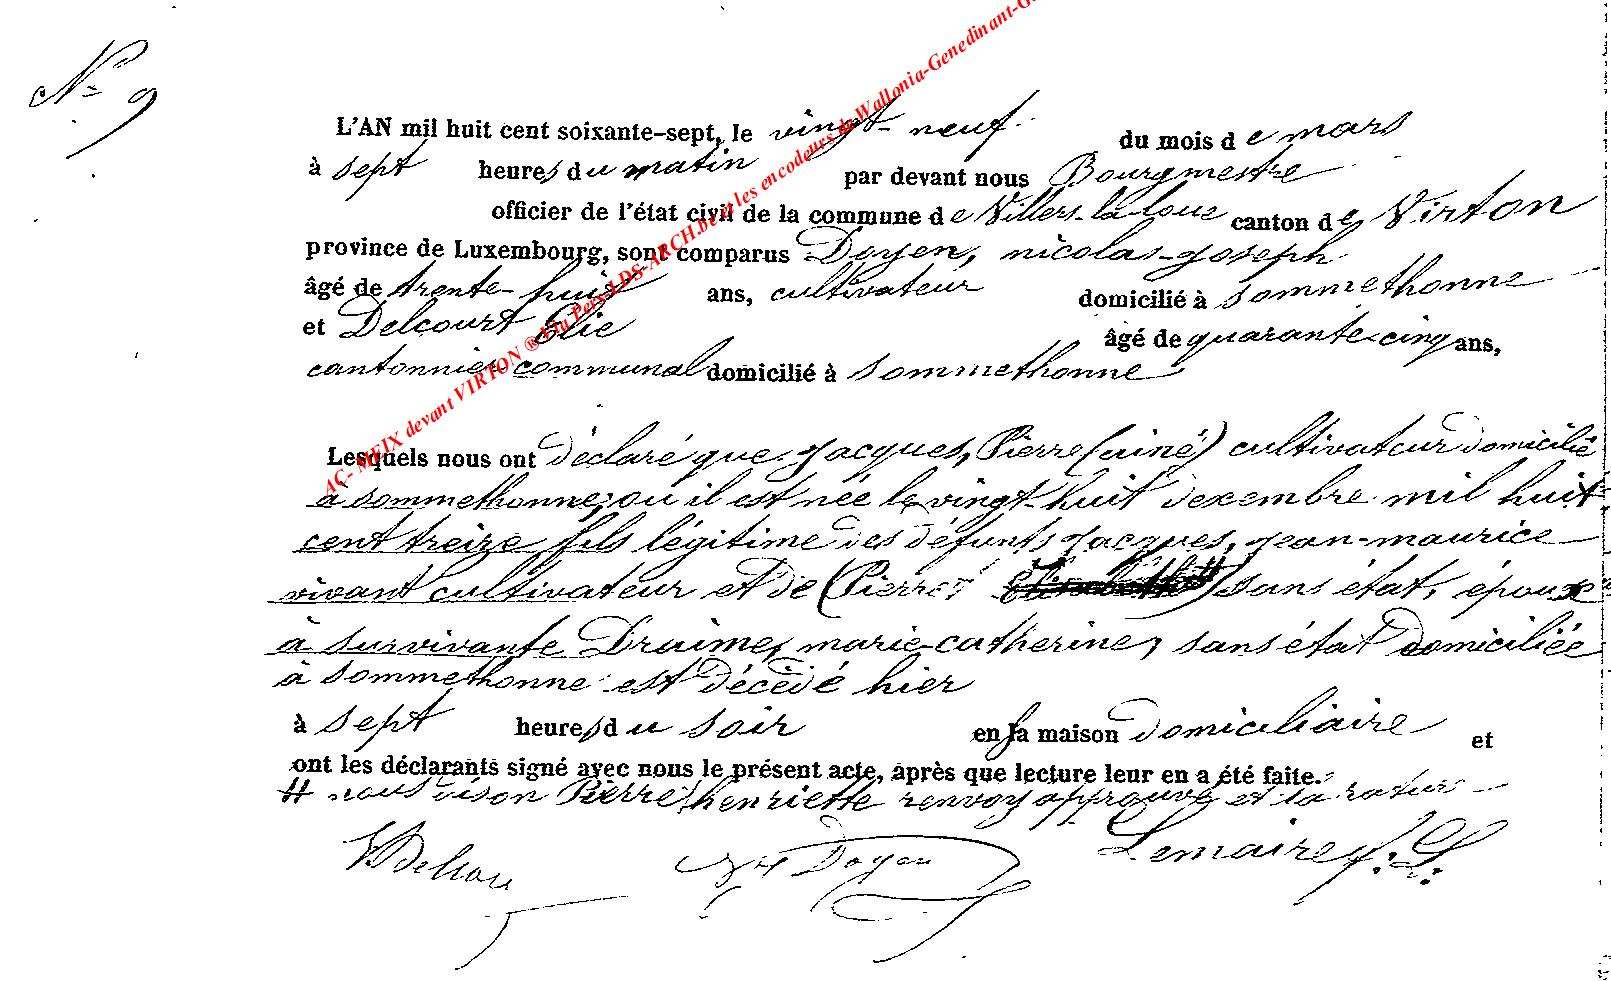 N° 9
L'AN mil huit cent soixante-sept, le vingt-neuf du mois de mars
à sept heures du matin par devant nous Bourgmestre
officier de l'état civil de la commune de Villers-la-loue canton de Virton
province de Luxembourg, sont comparus Doyen, nicolas-joseph
âgé de trente-huit ans, cultivateur domicilié à sommethonne
et Delcourt Elie âgé de quarante-cinq ans,
cantonnier communal domicilié à sommethonne
Lesquels nous ont déclaré que Jacques, Pierre (ainé) cultivateur domicilié
à sommethonne, ou il est née le vingt-huit dexembre mil huit
cent treize fils légitime des défunts Jacques, jean-maurice
vivant cultivateur et de (Pierret ) sans état, époux
à survivante Draime, marie-catherine, sans état domiciliée
à sommethonne est décédé hier
à sept heures du soir en la maison domiciliaire et
ont les déclarants signé avec nous le présent acte, après que lecture leur en a été faite.
nous dison Pierre, henriette renvoy approuvé et la ratur
Doyen
Lemaire J. L.
AC- MEIX devant VIRTON ® Viu Pers LDS-ARCH.be et les encodeurs de Wallonia-Genedinant-G